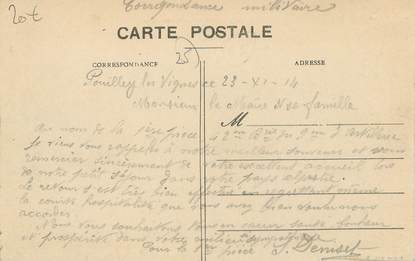 20t
Correspondance militaire
CARTE POSTALE
25
CORRESPONDANCE
ADRESSE
Pouilley les Vignes ce 23-XI-14
Monsieur le Maire & sa famille
M
Au nom de la 1ère pièce 2me du 9me d'Artillerie
Je viens vous rappeler à notre meilleur souvenir et vous
remercier sincèrement de votre excellent accueil lors
de notre petit séjour dans votre pays
Le retour s'est très bien en regrettant même
la courte hospitalité que vous avez bien voulu nous
accorder
Nous vous souhaitons tous en chœur santé bonheur
et prospérité dans votre
Pour la 1ère pièce